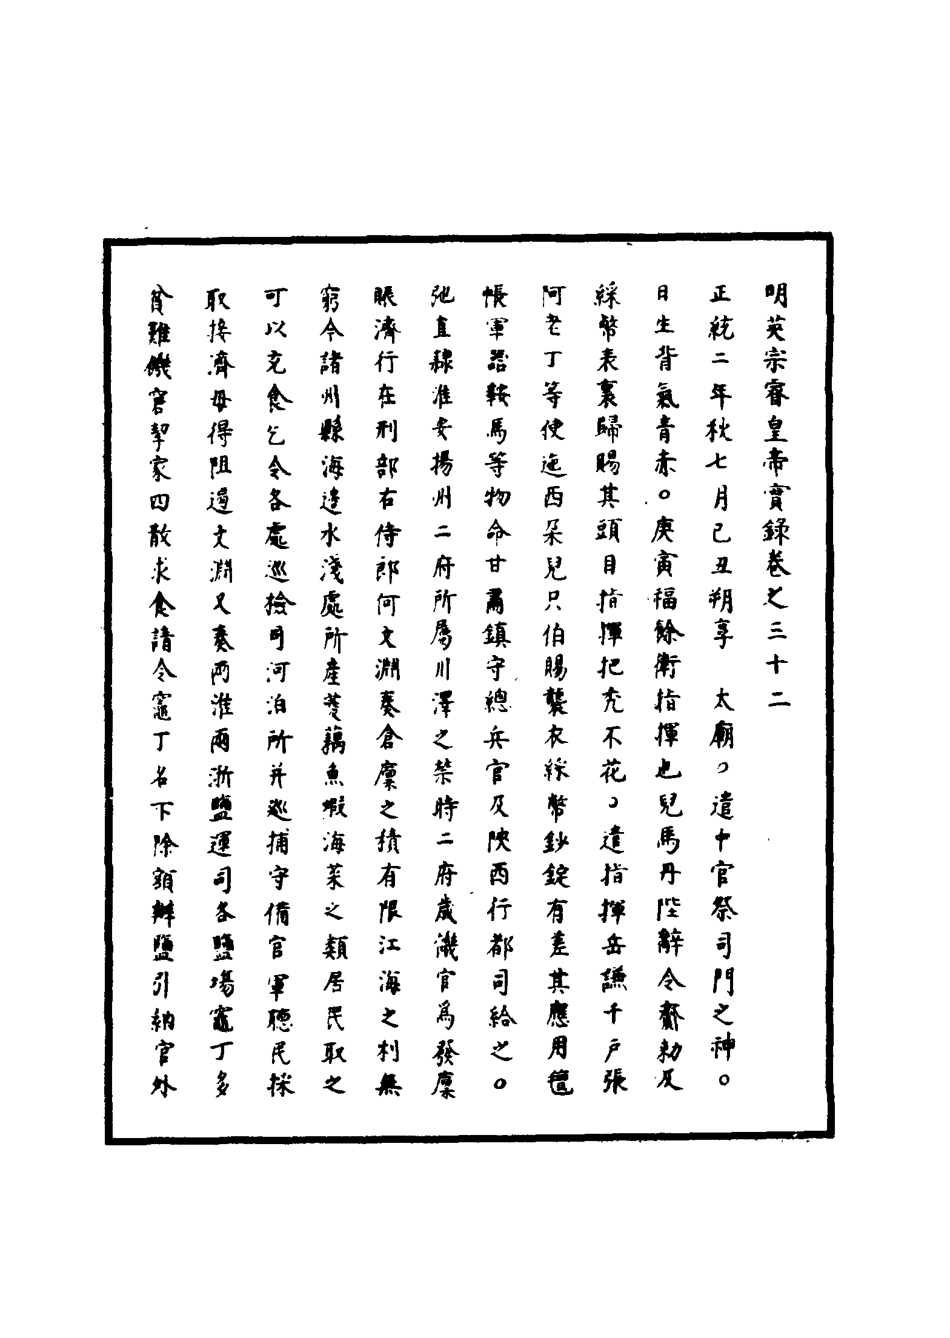 明英宗睿皇帝實錄卷之三十二
正統二年秋七月己丑朔享　太廟○遣中官祭司門之神○
日生背氣青赤○庚寅福餘衛指揮也兒馬丹陛辭令齎勑及
綵幣表裏歸賜其頭目指揮把禿不花○遣指揮岳謙千戶張
阿老丁等使迤西朵兒只伯賜襲衣綵幣鈔錠有差其應用氊
帳軍器鞍馬等物命甘肅鎮守總兵官及陝西行都司給之○
弛直隸淮安揚州二府所屬川澤之禁時二府歲饑官為發廩
賑濟行在刑部右侍郎何文淵奏倉廩之積有限江海之利無
窮今諸州縣海邊水淺處所產菱藕魚蝦海菜之類居民取之
可以充食乞令各處巡檢司河泊所并巡捕守備官軍聽民採
取接濟毋得阻遏文淵又奏兩淮兩浙鹽運司各鹽場竈丁多
貧難饑窘挈家四散求食請令竈丁名下除額辦鹽引納官外